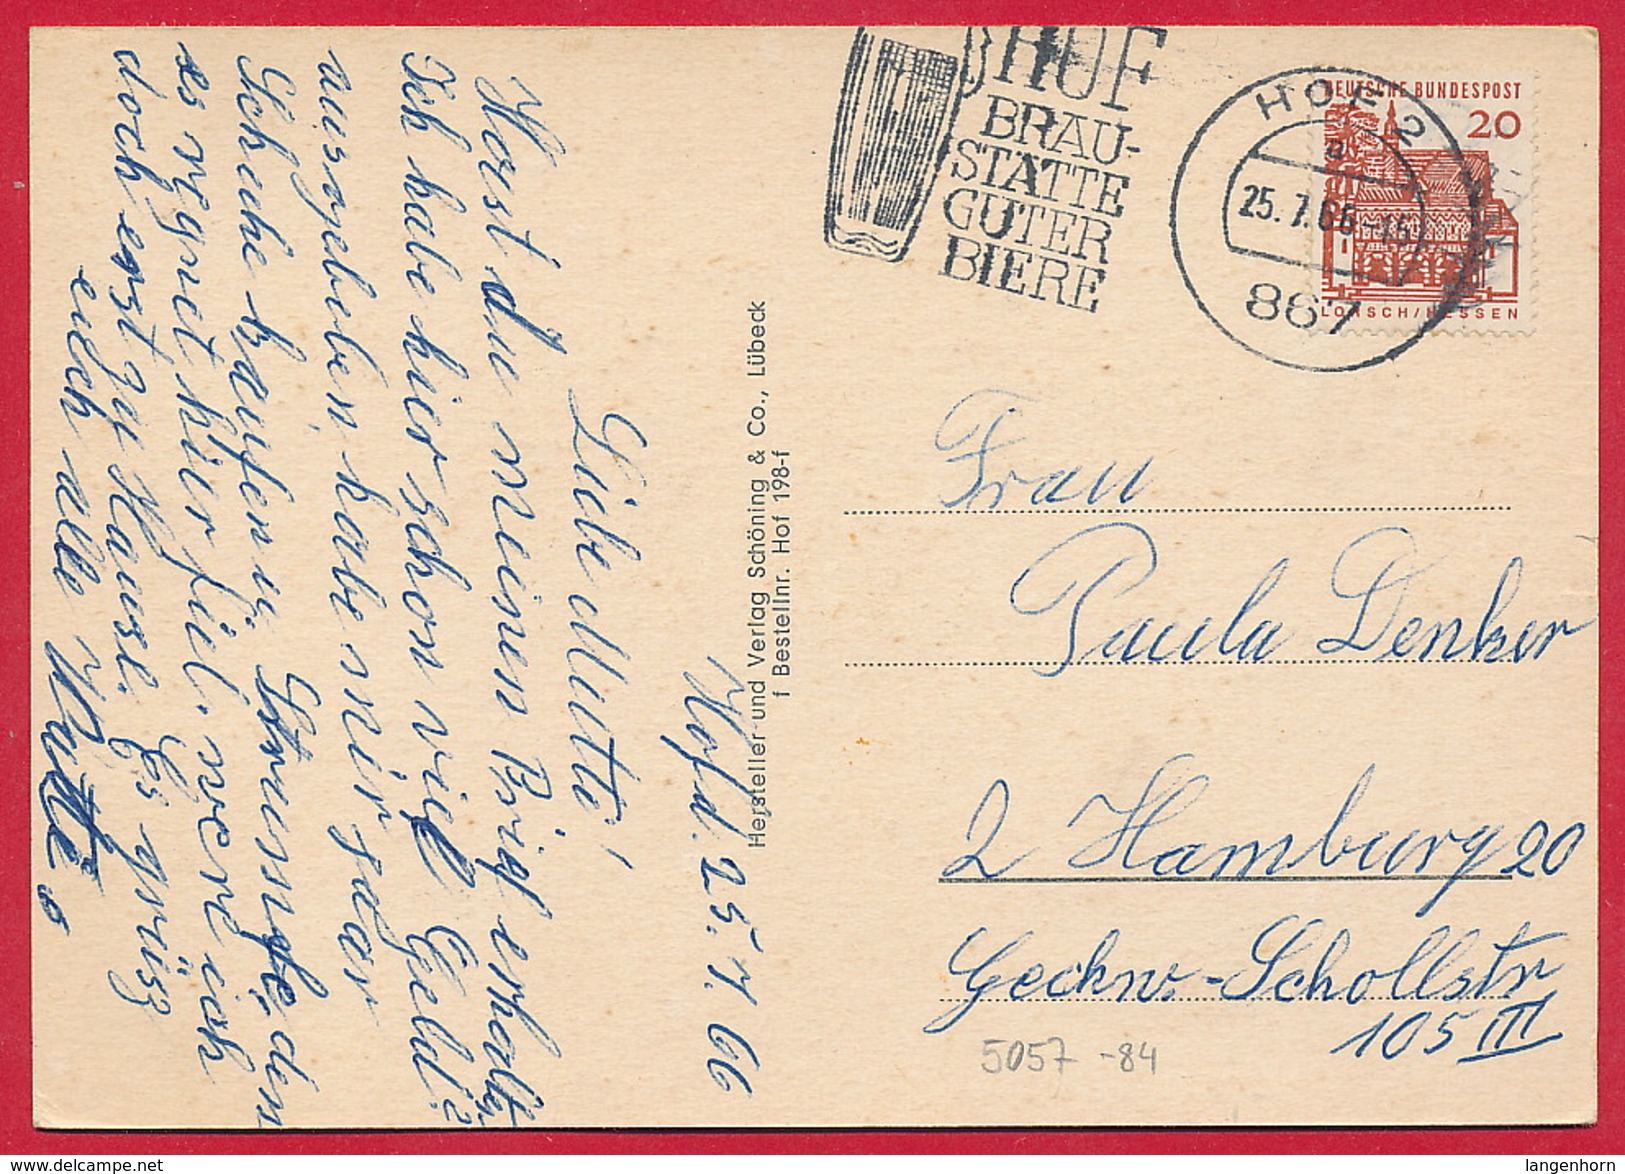 Hof d. 25.7.66
Liebe Mutti!
Hast du meinen Brief erhalten
Ich habe hier schon viel Geld
ausgegeben, habe mir sogar
Schuhe kaufen u. Strümpfe, den
es regnet hier fiel. were ich
doch erst zu Hause. Es grüsz
euch alle
Hersteller und Verlag Schöning & Co., Lübeck
f Bestellnr. Hof 198-f
HOF
BRAU-
STÄTTE
GUTER
BIERE
HOF 2
a
25.7.66-15
867
DEUTSCHE BUNDESPOST
20
LORSCH/HESSEN
Frau
Paula Denker
2 Hamburg 20
Geschw.-Schollstr
105 III
5057 -84
langenhorn